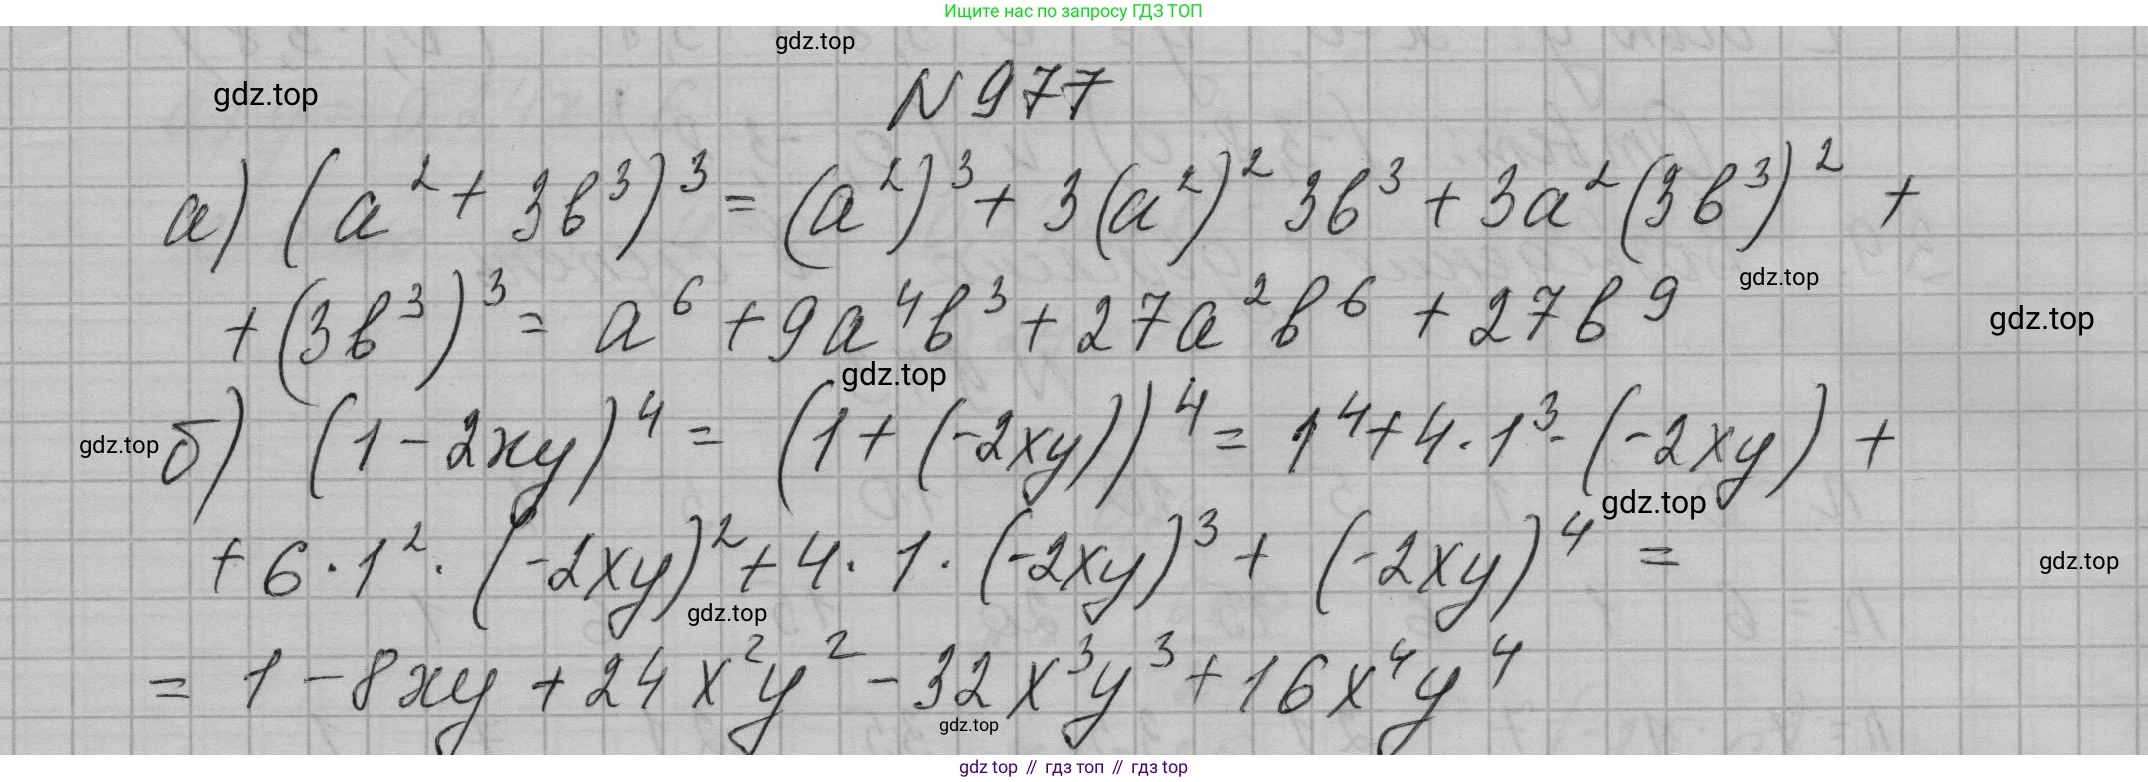 Ищите нас по запросу ГДЗ ТОП
gdz.top
gdz.top
N 977
а) (a² + 3b³)³ = (a²)³ + 3(a²)² 3b³ + 3a² (3b³)² +
gdz.top
+ (3b³)³ = a⁶ + 9a⁴b³ + 27a²b⁶ + 27b⁹
gdz.top
gdz.top
gdz.top
б) (1 - 2xy)⁴ = (1 + (-2xy))⁴ = 1⁴ + 4 · 1³ · (-2xy) +
gdz.top
+ 6 · 1² · (-2xy)² + 4 · 1 · (-2xy)³ + (-2xy)⁴ =
gdz.top
gdz.top
= 1 - 8xy + 24x²y² - 32x³y³ + 16x⁴y⁴
gdz.top
gdz top // гдз топ // гдз top